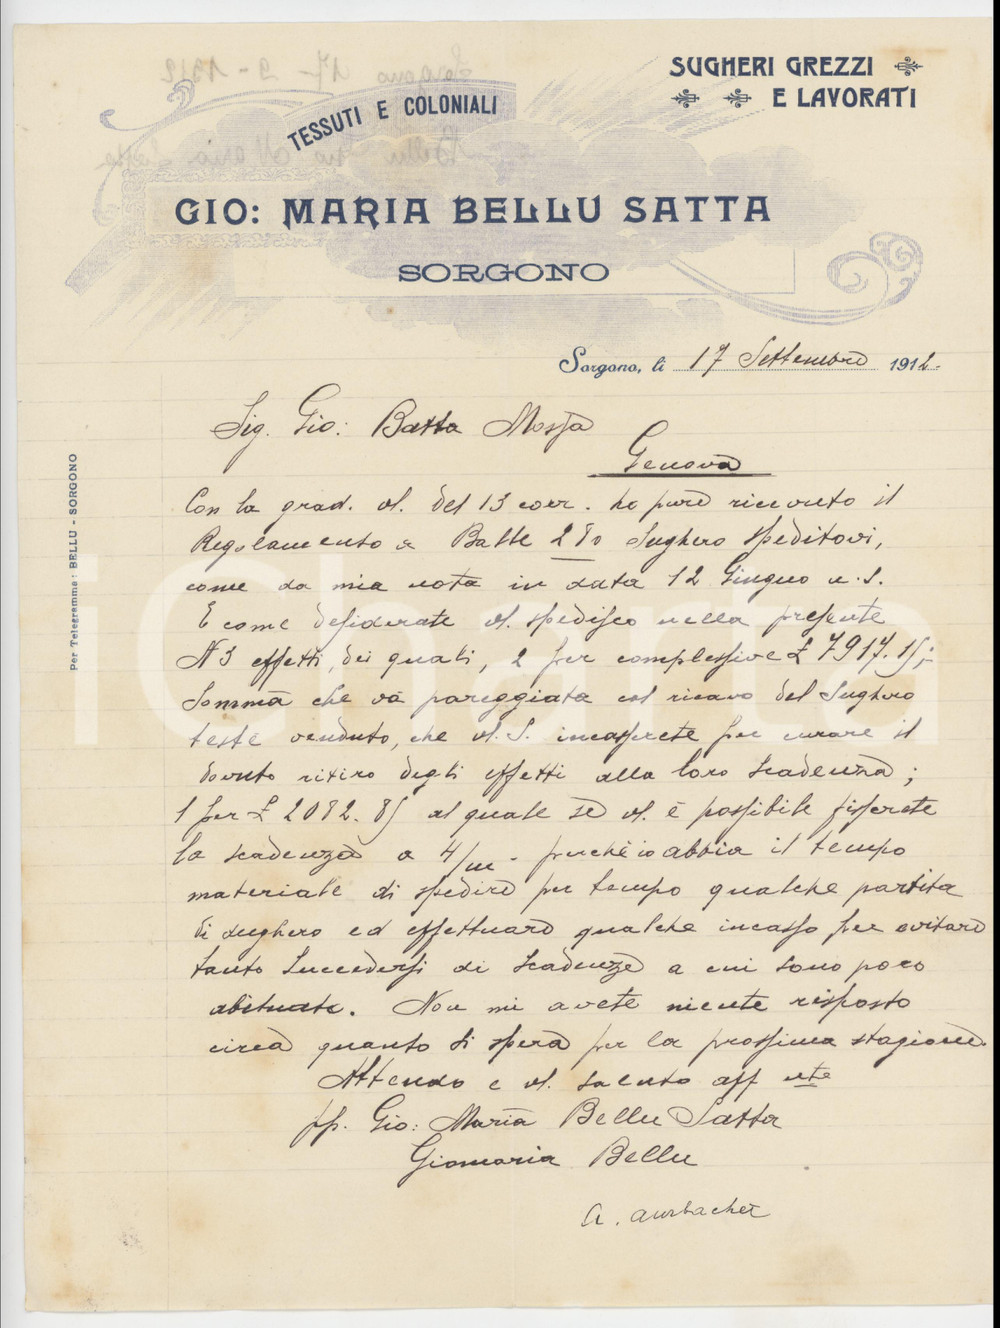 SUGHERI GREZZI
E LAVORATI
TESSUTI E COLONIALI
GIO: MARIA BELLU SATTA
SORGONO
Sorgono, li 17 Settembre 1912.
Sig. Gio: Batta
Genova
Per Telegrammi: BELLU - SORGONO
Con la grad. vs. del 13 corr. ho pure ricevuto il
Regolamento a Balle 280 Sughero speditovi,
come da mia nota in data 12 Giugno u.s.
E come desiderate vi spedisco nella presente
N 3 effetti, dei quali, 2 per complessive £ 7917.15;
Somma che va pareggiata col ricavo del Sughero
testè venduto, che vs. S. incasserete per curare il
dovuto ritiro degli effetti alla loro scadenza;
1 per £ 2082.85 al quale se vi è possibile fisserete
la scadenza a 4/m - perchè io abbia il tempo
materiale di spedire per tempo qualche partita
di sughero ed effettuare qualche incasso per evitare
tanto succedersi di scadenze a cui sono poco
abituato. Non mi avete niente risposto
circa quanto si spera per la prossima stagione.
Attendo e vi saluto aff nte
pp. Gio: Maria Bellu Satta
Giomaria Bellu
iCharta